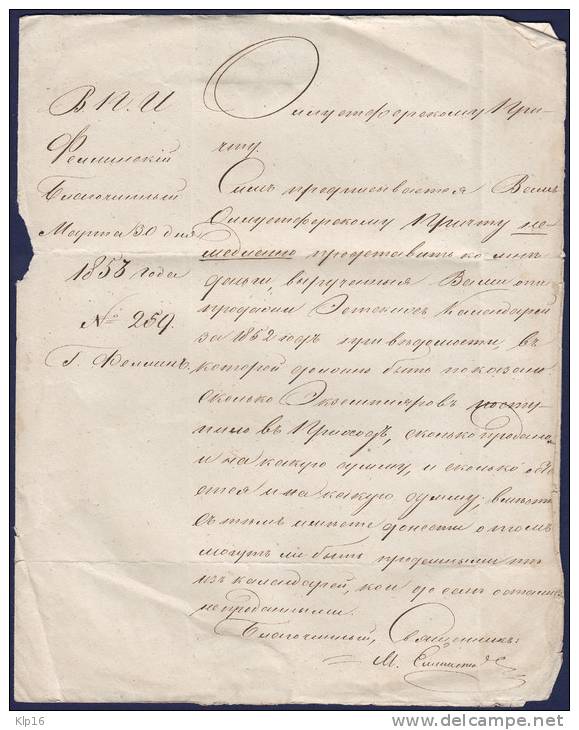 В. П. И
Феллинскій
Благочинный
Марта 30 дня
1853 года
№ 259.
Г. Феллинъ.
Причту.
Симъ предписывается Вамъ
Причту не
медленно представить ко мнѣ
деньги, вырученныя Вами отъ
продажи Эстскихъ Календарей
за 1852 годъ при вѣдомости, въ
которой должно быть показано
сколько Экземпляровъ посту
пило въ Приходъ, сколько продано
и на какую сумму, и сколько
стся и на какую сумму; вмѣстѣ
съ тѣмъ имѣете донести о томъ
могутъ ли быть проданными
изъ календарей, кои до селѣ остались
непроданными.
Благочинный, Священникъ
М.
Klp16
www.delcampe.net